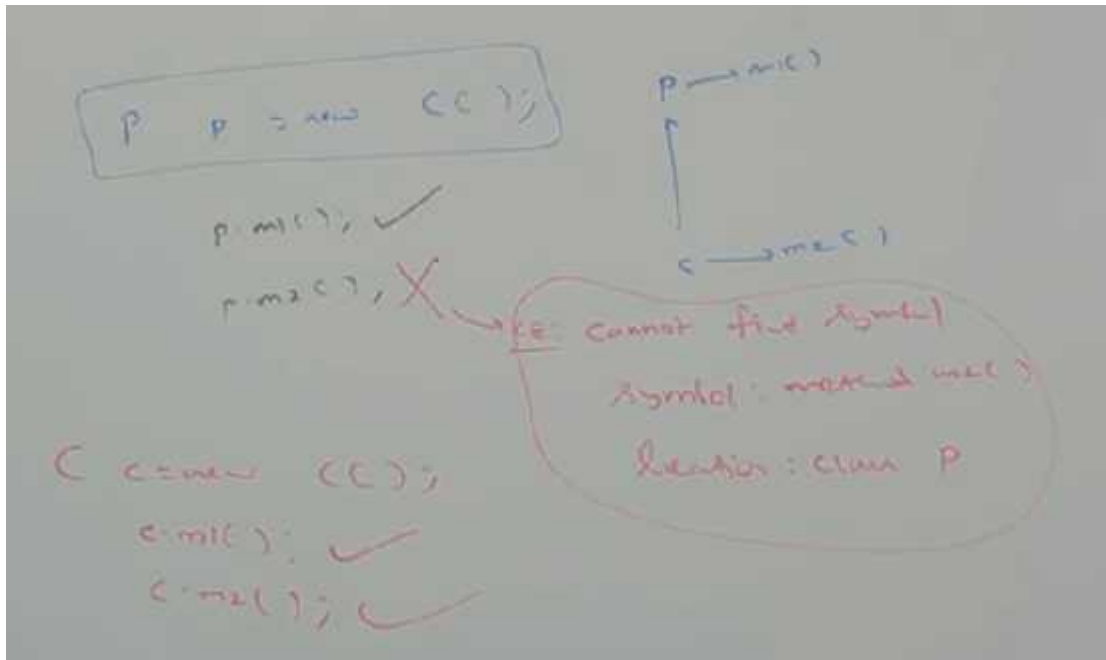 P p = new C( );
p.m1( );
p.m2( );
P → m1( )
C → m2( )
CE: cannot find symbol
symbol: method m2( )
location: class P
C c = new C( );
c.m1( );
c.m2( );